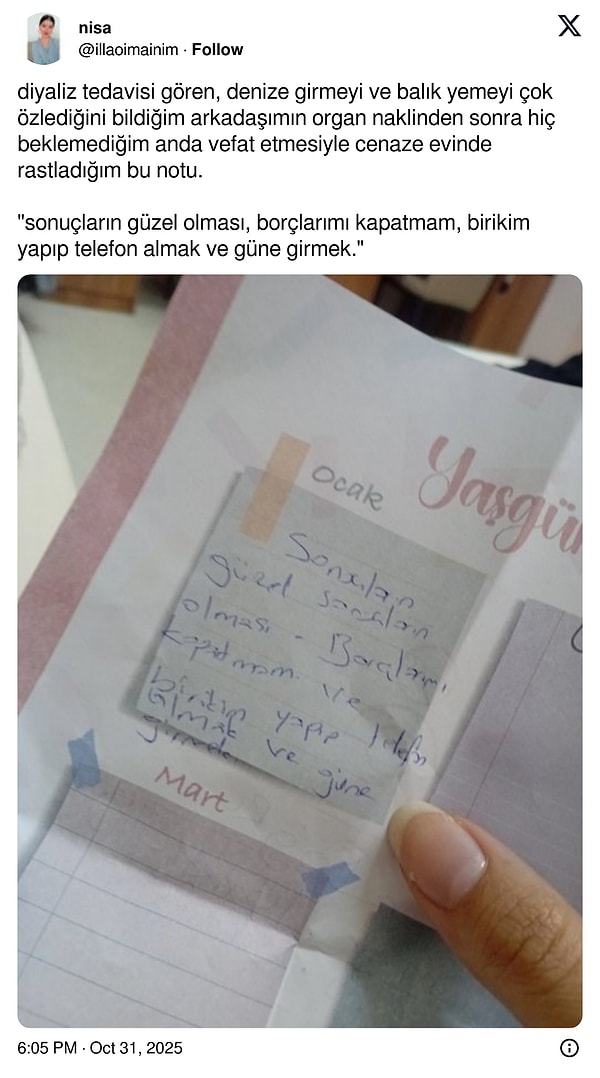 nisa
@illaoimainim · Follow
diyaliz tedavisi gören, denize girmeyi ve balık yemeyi çok
özlediğini bildiğim arkadaşımın organ naklinden sonra hiç
beklemediğim anda vefat etmesiyle cenaze evinde
rastladığım bu notu.
"sonuçların güzel olması, borçlarımı kapatmam, birikim
yapıp telefon almak ve güne girmek."
Ocak
Yaşgün
Sonuçların
güzel
olması - Borçlarımı
kapatmam ve
birikim yapıp telefon
almak ve güne
girmek
Mart
6:05 PM · Oct 31, 2025